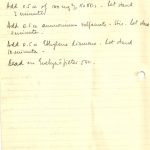 Add 0.5 cc of 100 mg % NaNO2. Let stand
2 minutes.
Add 0.5 cc ammonium sulfamate. Let stand
2 minutes.
Add 0.5 cc Ethylene diamine. Let stand
10 minutes.
Read in Evelyn filter